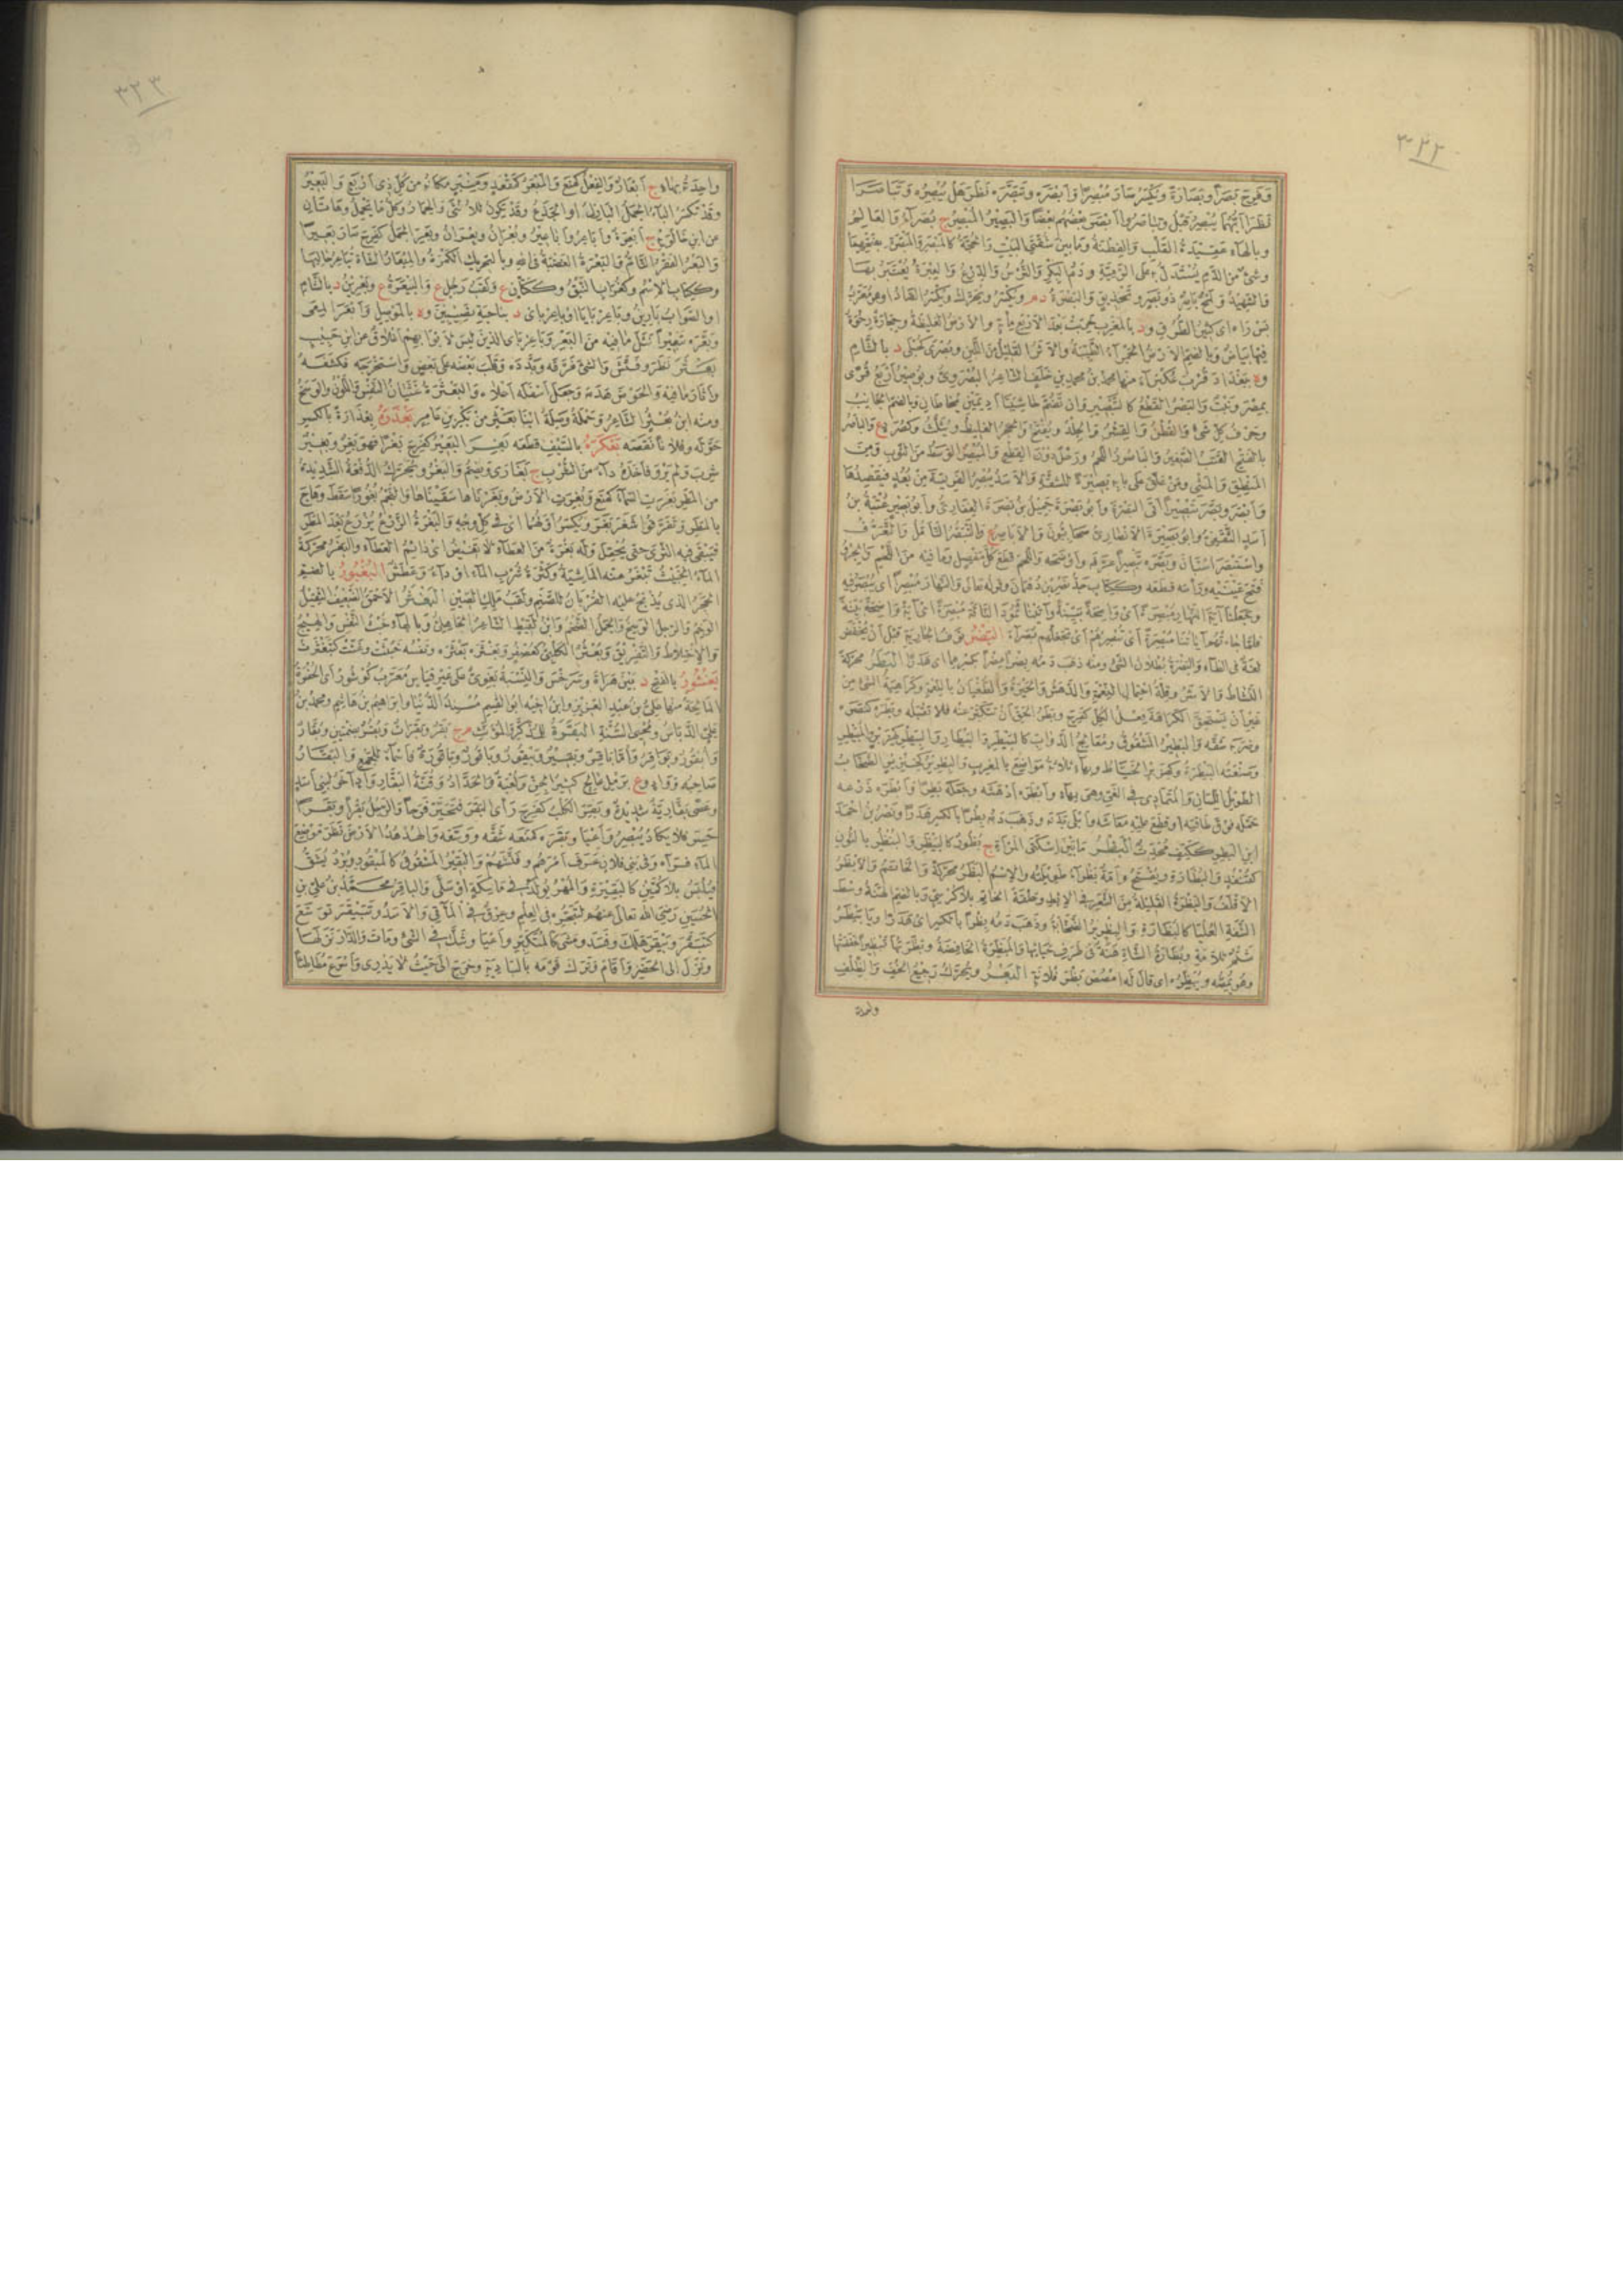 ٣٢٢
وفرح بصرا وبصارة ويكسر صار مبصرا وأبصره وتبصره نظر هل يبصره وتباصرا
نظرا أيهما يبصر قبل وتباصروا أبصر بعضهم بعضا والبصير المبصر ج بصراء والعالم
وبالهاء عقيدة القلب والفطنة وما بين شقتي البيت والحجة كالمبصر والمبصرة بفتحهما
وشيء من الدم يستدل به على الرمية ودم البكر والترس والدرع والعبرة يعتبر بها
والشهيد ولمح باصر ذو بصر وتحديق والبصرة د م ويكسر ويحرك ويكسر الصاد او هو معرب
بس راه اى كثير الطرق و د بالمغرب خربت بعد الاربع مأية والارض الغليظة وحجارة رخوة
فيها بياض وبالضم الارض الحمراء الطيبة والاثر القليل من اللبن وبصرى كحبلى د بالشام
و ة ببغداد قرب عكبراء منها محمد بن محمد بن خلف الشاعر البصروى وبوصير أربع قرى
بمصر ونبت والبصر القطع كالتبصير وان تضم حاشيتا أديمين يخاطان وبالضم الجانب
وحرف كل شيء والقطن والقشر والجلد ويفتح والحجر الغليظ ويثلث وكصرد ع والباصر
بالفتح القتب الصغير والباصور اللحم ورحل دون القطع والمبصر الوسط من الثوب ومن
المنطق والمشى ومن علق على بابه بصيرة للشقة والاسد يبصر الفريسة من بعد فيقصدها
وأبصر وبصر تبصيرا أتى البصرة وأبو بصرة جميل بن بصرة الغفارى وأبو بصير عتبة بن
أسيد الثقفى وابو بصيرة الانصارى صحابيون والاباصر ع والتبصر التأمل والتعرف
واستبصر استبان وبصره تبصيرا عرفه واوضحه واللحم قطع كل مفصل وما فيه من اللحم والجرو
فتح عينيه ورأسه قطعه وككتاب جد نصر بن دهمان وقوله تعالى والنهار مبصرا اى يبصر فيه
وجعلنا آية النهار مبصرة اى واضحة بينة وآتينا ثمود الناقة مبصرة اى آية واضحة بينة
فلما جاءتهم آياتنا مبصرة اى تبصرهم اى تجعلهم بصراء البضر نوف الجارية قبل أن يخفض
لغة فى الظاء والبضرة بطلان الشى ومنه ذهب دمه بضرا مضرا بكسرهما اى هدرا البطر محركة
النشاط والاشر وقلة احتمال النعمة والدهش والحيرة والطغيان بالنعمة وكراهية الشئ من
غير أن يستحق الكراهة فعل الكل كفرح وبطر الحق أن يتكبر عنه فلا تقبله وبطره كنصره
وضربه شقه والبطير المشقوق ومعالج الدواب كالبيطر والبيطار والبيطر كهزبر والمبيطر
وصنعته البيطرة وكهزبر الخياط وبهاء ثلاثة مواضع بالمغرب والبطرير كخنزير الصخاب
الطويل اللسان والمتمادى فى الغى وهى بهاء وأبطره أدهشه وجعله بطرا وأبطره ذرعه
حمله فوق طاقته او قطع عليه معاشه وأبلى بدنه وذهب دمه بطرا بالكسر هدرا ونصر بن احمد
ابن البطر ككتف محدث البظر ما بين اسكتى المرأة ج بظور كالبيظر والبنظر بالنون
كقنفذ والبظارة ويفتح وامة بظراء طويلته والاسم البظر محركة والخاتم والابظر
الاقلف والبظرة القليلة من الشعر فى الابط وحلقة الخاتم بلا كرسى وبالضم الهنة وسط
الشفة العليا كالبظارة والبظرير الصخابة وذهب دمه بظرا بالكسر اى هدرا ويا بيظر
شتم للامة وبظارة الشاة هنة فى طرف حيائها والمبظرة الخافضة وبظرتها تبظيرا خفضتها
وهو يمصه ويبظره اى قال له امصص بظر فلانة البعر ويحرك رجيع الخف والظلف
واحدة
٣٢٣
واحدة بهاء ج أبعار والفعل كمنع والمبعر كمقعد ومنبر مكانه من كل ذى أربع والبعير
وقد تكسر الباء الجمل البازل او الجذع وقد يكون للانثى والحمار وكل ما يحمل وهاتان
عن ابن خالويه ج أبعرة وأباعر وأباعير وبعران وبعران وبعر الجمل كفرح صار بعيرا
والبعر الفقر التام والبعرة الغضبة فى الله وبالتحريك الكمرة والمبعار الشاة تباعر حالبها
وككتاب الاسم وكغراب النبق وككتان ع ولقب رجل ع والبيعرة ع وبعرين د بالشام
او الصواب بارين وباعربايا او باعرباى د بناحية نصيبين و ة بالموصل وأبعر المعى
وبعره تبعيرا نثل ما فيه من البعر وباعرباى الذين ليس لابوابهم اغلاق عن ابن حبيب
بعثر نظر وفتش والشئ فرقه وبدده وقلب بعضه على بعض واستخرجه فكشفه
وأثار ما فيه والحوض هدمه وجعل أسفله أعلاه والبعثرة غثيان النفس واللون والوسخ
ومنه ابن بعثر الشاعر ابنا بعثر من بكر بن عامر بعذره بعذارة بالكسر
حركه وفلانا نقصه بعكره بالسيف قطعه بغر البعير كفرح بغرا فهو بغر وبغير
شرب ولم يرو فاخذه داء من الشرب ج بغارى ويضم والبغر ويحرك الدفعة الشديدة
من المطر بغرت السماء كمنع وبغرت الارض وبغرناها سقيناها والنجم بغورا سقط وهاج
بالمطر وتفرقوا شغر بغر ويكسر أولهما اى فى كل وجه والبغرة الزرع يزرع بعد المطر
فيبقى فيه الثرى حتى يحقل وله بغرة من العطاء لا تغيض اى دائم العطاء والبغر محركة
الماء الخبيث تبغر عنه الماشية وكثرة شرب الماء او داء وعطش البغبور بالضم
الحجر الذى يذبح عليه القربان للصنم ولقب ملك الصين البغثر الاحمق الضعيف الثقيل
الوخم والرجل الوسخ والجمل الضخم وابن لقيط الشاعر الجاهلى وبالهاء خبث النفس والهيج
والاختلاط والتفريق وبغثر الكلبى كعصفر وبغثره بعثره ونفسه خبثت وغثت كتبغثرت
بغشور بالفتح د بين هراة وسرخس والنسبة بغوى على غير قياس معرب كوشور اى الحفرة
المالحة منها على بن عبد العزيز وابن اخيه ابو القسم مسند الدنيا وابراهيم بن هاشم ومحمد بن
على الدباس ومحيى السنة البقرة للمذكر والمؤنث م ج بقر وبقرات وبقر بضمتين وبقار
وأبقور وبواقر وأما باقر وبقير وبيقور وباقور وباقورة فأسماء للجمع والبقار
صاحبه وواد و ع برمل عالج كثير الجن ولعبة والحداد وقنة البقار واد آخر لبنى أسد
وعصى بقارية شديدة وبقر الكلب كفرح رأى البقر فتحير فرحا والرجل بقرا وبقرا
حسر فلا يكاد يبصر وأعيا وبقره كمنعه شقه ووسعه والهدهد الارض نظر موضع
الماء فرآه وفى بنى فلان عرف امرهم وفتشهم والبقير المشقوق كالمبقور وبرد يشق
فيلبس بلا كمين كالبقيرة والمهر يولد فى ماسكة او سلى والباقر محمد بن على بن
الحسين رضى الله تعالى عنهم لتبحره فى العلم وعرق فى المآقى والاسد وتبيقر توسع
كتبقر وبيقر هلك وفسد ومشى كالمتكبر وأعيا وشك فى الشئ ومات والدار نزلها
ونزل الى الحضر وأقام وترك قومه بالبادية وخرج الى حيث لا يدرى وأسرع مطأطئا